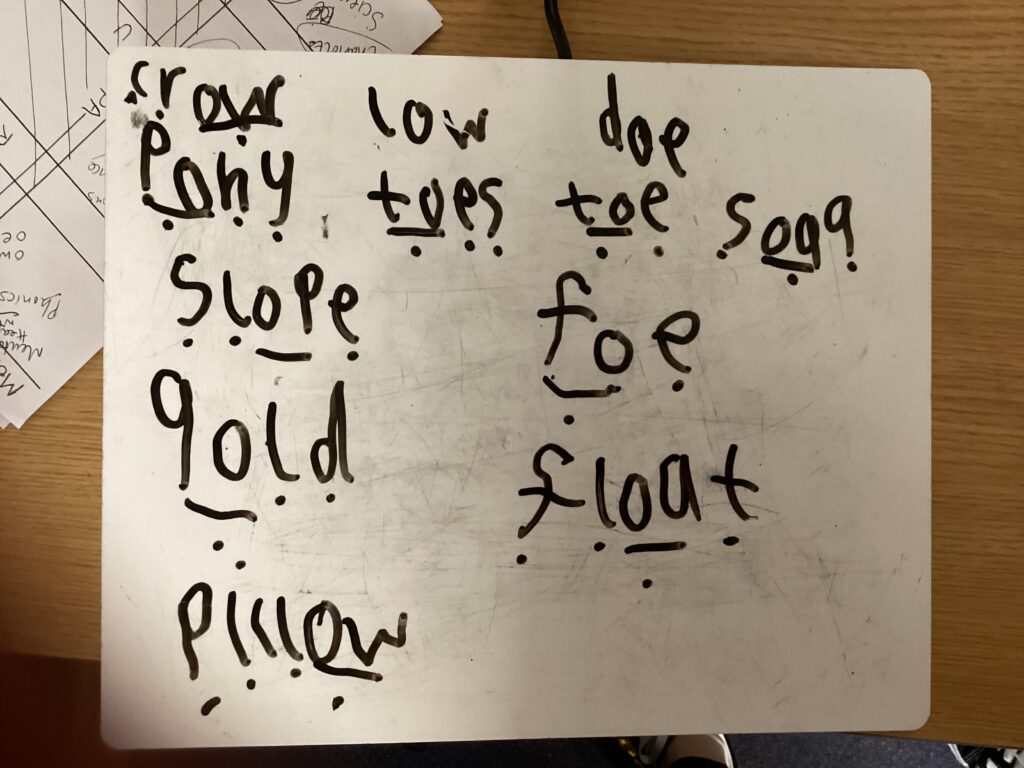 crow low doe
pony toes toe soaq
slope foe
gold float
pillow
Phonics
ow
oe